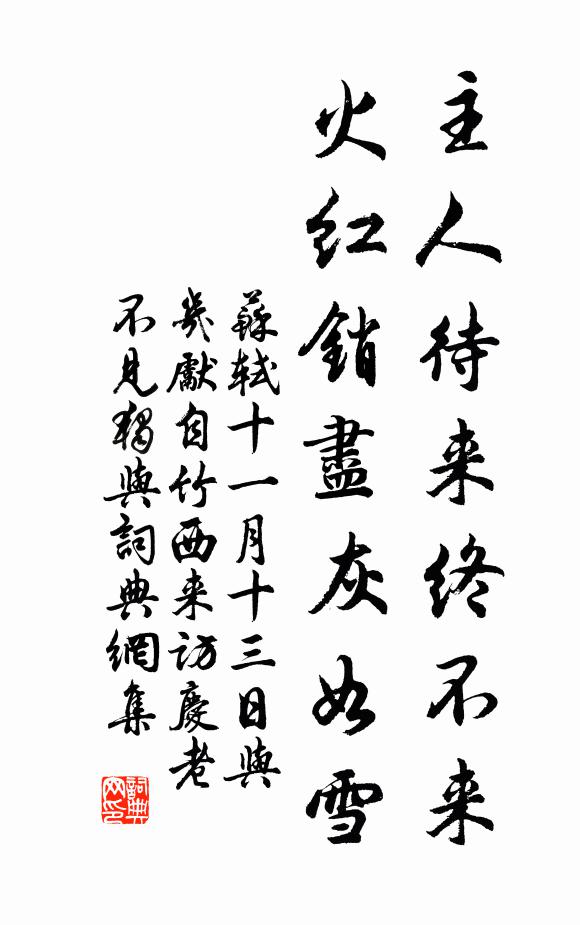 主人待来終不来
火紅銷盡灰如雪
蘇軾十一月十三日與
幾獻自竹西来訪慶老
不見獨與詞典網集
詞典
网印